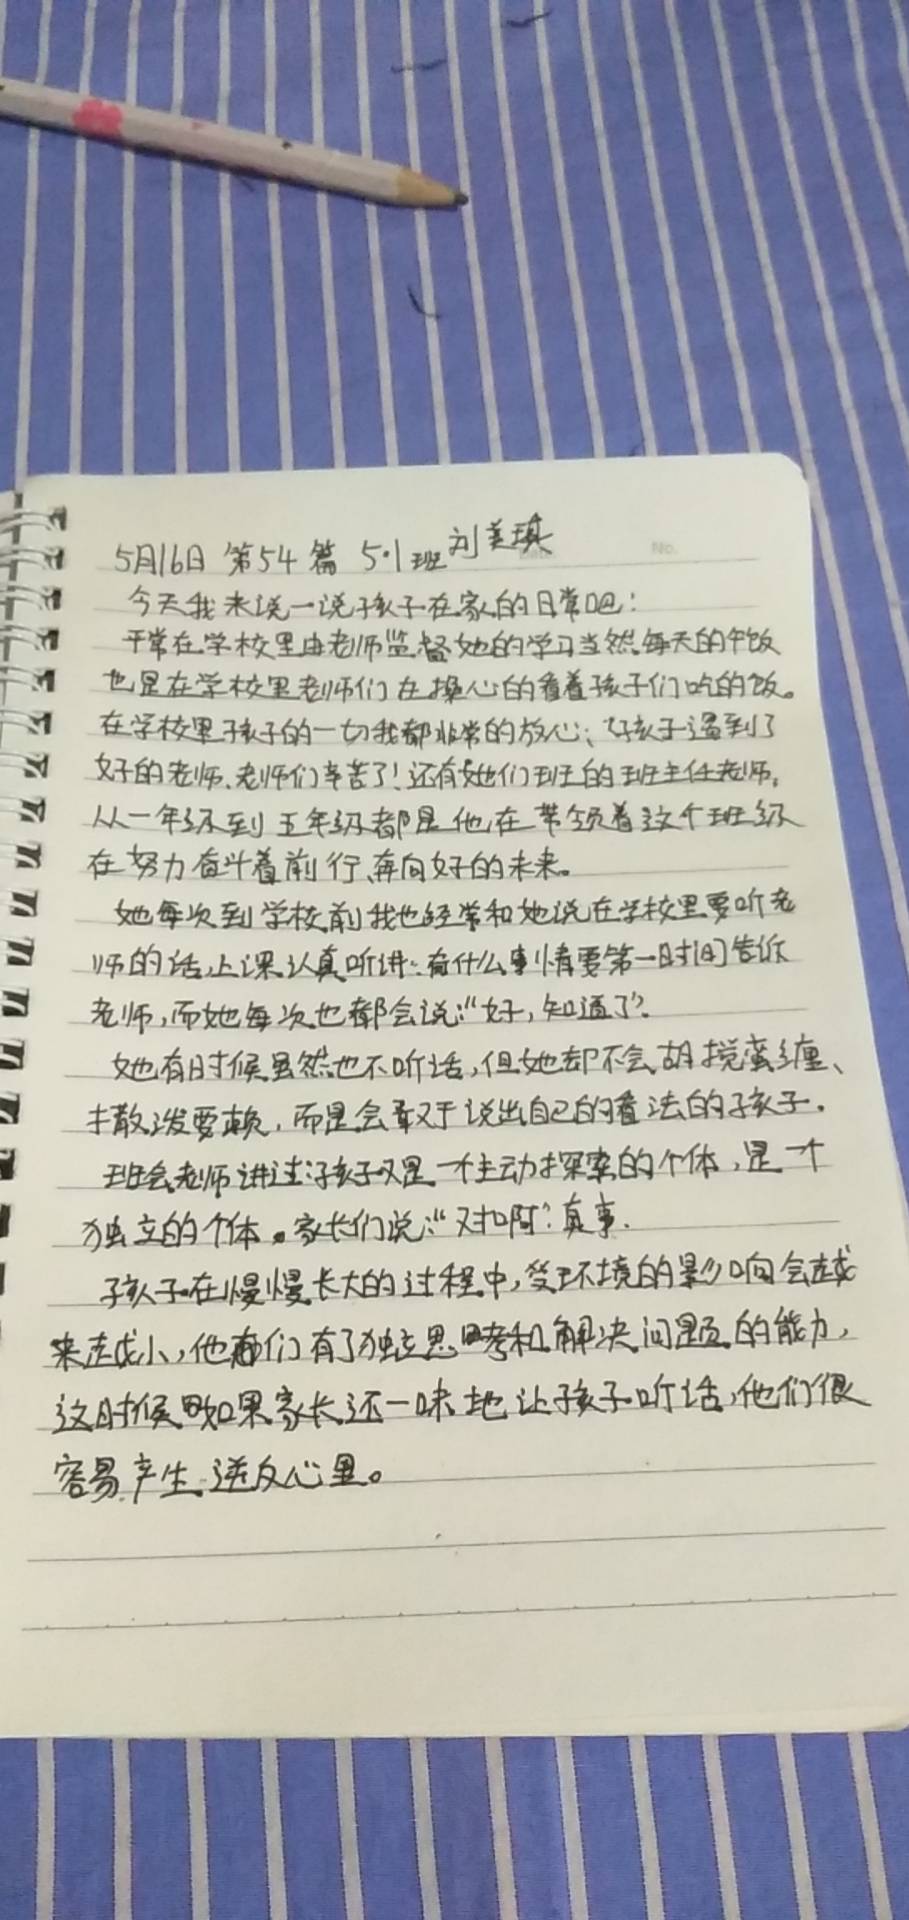 5月16日 第54篇 5·1班 刘美琪
No.
今天我来说一说孩子在家的日常吧:
平常在学校里由老师监督她的学习当然每天的午饭
也是在学校里老师们在操心的看着孩子们吃的饭。
在学校里孩子的一切我都非常的放心;好孩子遇到了
好的老师、老师们辛苦了!还有她们班的班主任老师,
从一年级到五年级都是他在带领着这个班级
在努力奋斗着前行、奔向好的未来。
她每次到学校前我也经常和她说在学校里要听老
师的话,上课认真听讲:有什么事情要第一时间告诉
老师,而她每次也都会说:“好,知道了”。
她有时候虽然也不听话,但她却不会胡搅蛮缠、
撒泼耍赖,而是会敢于说出自己的看法的孩子.
班会老师讲过:孩子又是一个主动探索的个体,是一个
独立的个体。家长们说:“对啊”?真事.
孩子在慢慢长大的过程中,受环境的影响会越
来越小,他们有了独立思考和解决问题的能力,
这时候如果家长还一味地让孩子听话,他们很
容易产生逆反心里。